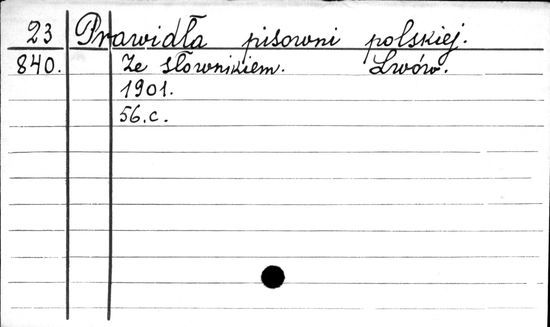 23 Prawidła pisowni polskiej.
840. Ze słownikiem. Lwów.
1901.
56.c.